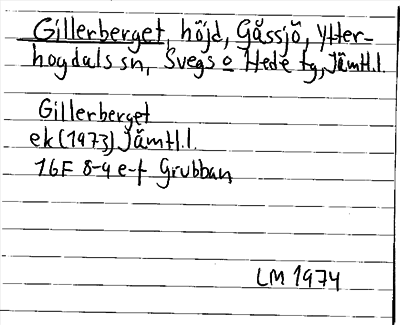 Gillerberget, höjd, Gåssjö, Ytter-
hogdals sn, Svegs o Hede tg, Jämtl.l.
Gillerberget
ek (1973) Jämtl.l.
16F 8-9 e-f Grubban
LM 1974